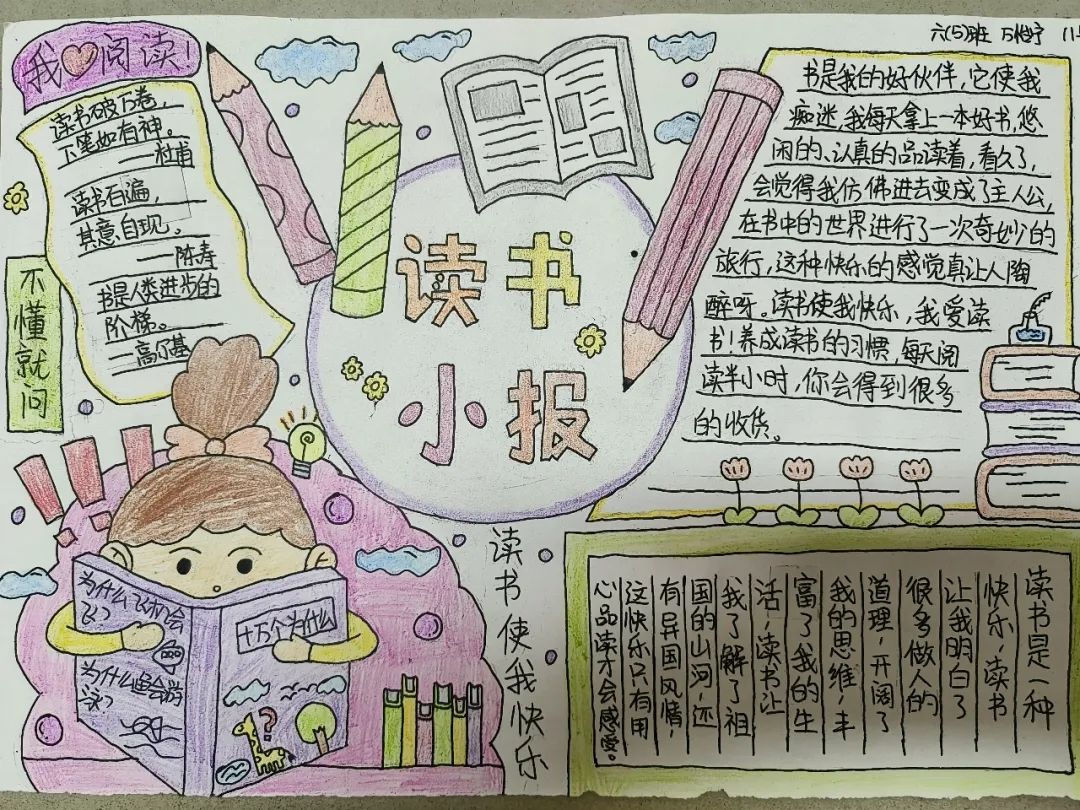 我 阅读!
六(5)班
读书破万卷，
下笔如有神。
——杜甫
读书百遍，
其意自现。
——陈寿
书是人类进步的
阶梯。
——高尔基
不懂就问
读书
小报
书是我的好伙伴，它使我
痴迷，我每天拿上一本好书，悠
闲的、认真的品读着，看久了，
会觉得我仿佛进去变成了主人公，
在书中的世界进行了一次奇妙的
旅行，这种快乐的感觉真让人陶
醉呀。读书使我快乐，我爱读
书！养成读书的习惯，每天阅
读半小时，你会得到很多
的收货。
为什么飞机会
飞？
为什么鱼会游
泳？
十万个为什么
?
读书使我快乐
读书是一种
快乐，读书
让我明白了
很多做人的
道理，开阔了
我的思维，丰
富了我的生
活，读书让
我了解了祖
国的山河，还
有异国风情，
这快乐只有用
心品读才会感受。